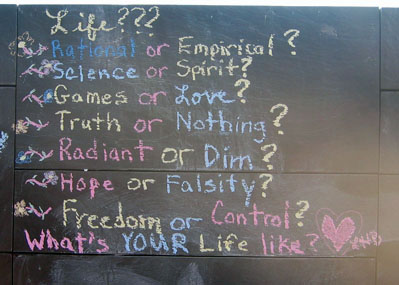 Life???
Rational or Empirical?
Science or Spirit?
Games or Love?
Truth or Nothing?
Radiant or Dim?
Hope or Falsity?
Freedom or Control?
What's YOUR Life like?